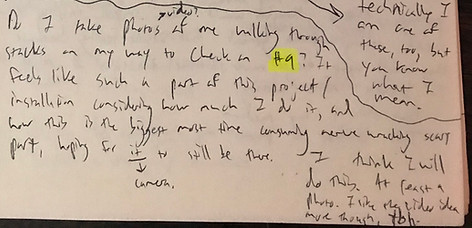 video?
Do I take photos of me walking through
stacks on my way to check on #9? It
feels like such a part of this project/
installation considering how much I do it, and
how this is the biggest most time consuming nerve wracking scary
part, hoping for it to still be there.
camera.
technically I
am one of
these, too, but
you know
what I
mean.
I think I will
do this. At least a
photo. I like the video idea
more though, tbh.